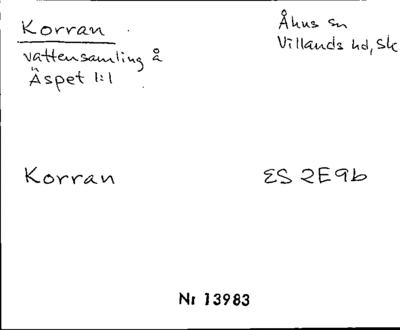 Korran
Åhus sn
Villands hd, Sk
vattensamling å
Äspet 1:1
Korran
ES 2E9b
Nr 13983